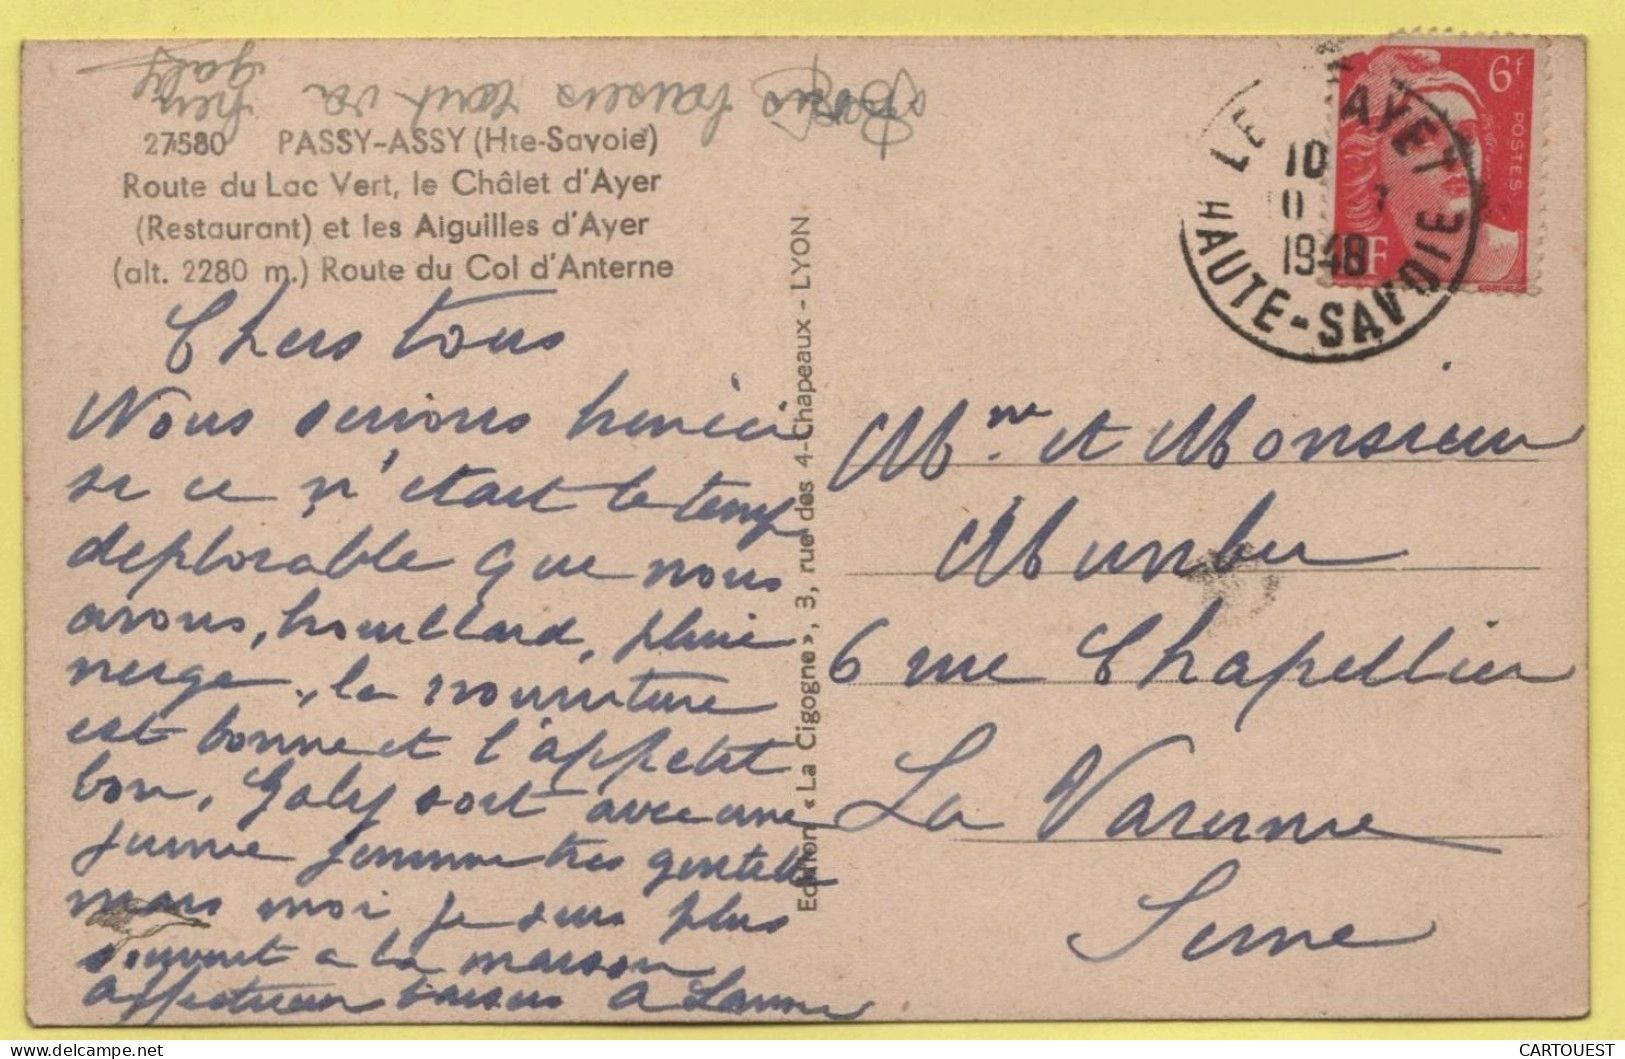 Bons baisers tout va bien
Galy
27580 PASSY-ASSY (Hte-Savoie)
Route du Lac Vert, le Châlet d'Ayer
(Restaurant) et les Aiguilles d'Ayer
(alt. 2280 m.) Route du Col d'Anterne
Chers tous
Nous serions heureux ici
si ce n'etait le temps
deplorable que nous
avons, brouillard, pluie
neige, la nourriture
est bonne et l'appetit
bon, Galy sort avec une
jeune femme tres gentille
mais moi je suis plus
souvent a la maison
affectueux baisers a
Edition « La Cigogne », 3, rue des 4-Chapeaux - LYON
LE AYET
10
1948
HAUTE-SAVOIE
6F
POSTES
Mme et Monsieur
6 rue Chapellier
La Varenne
Seine
CARTOUEST